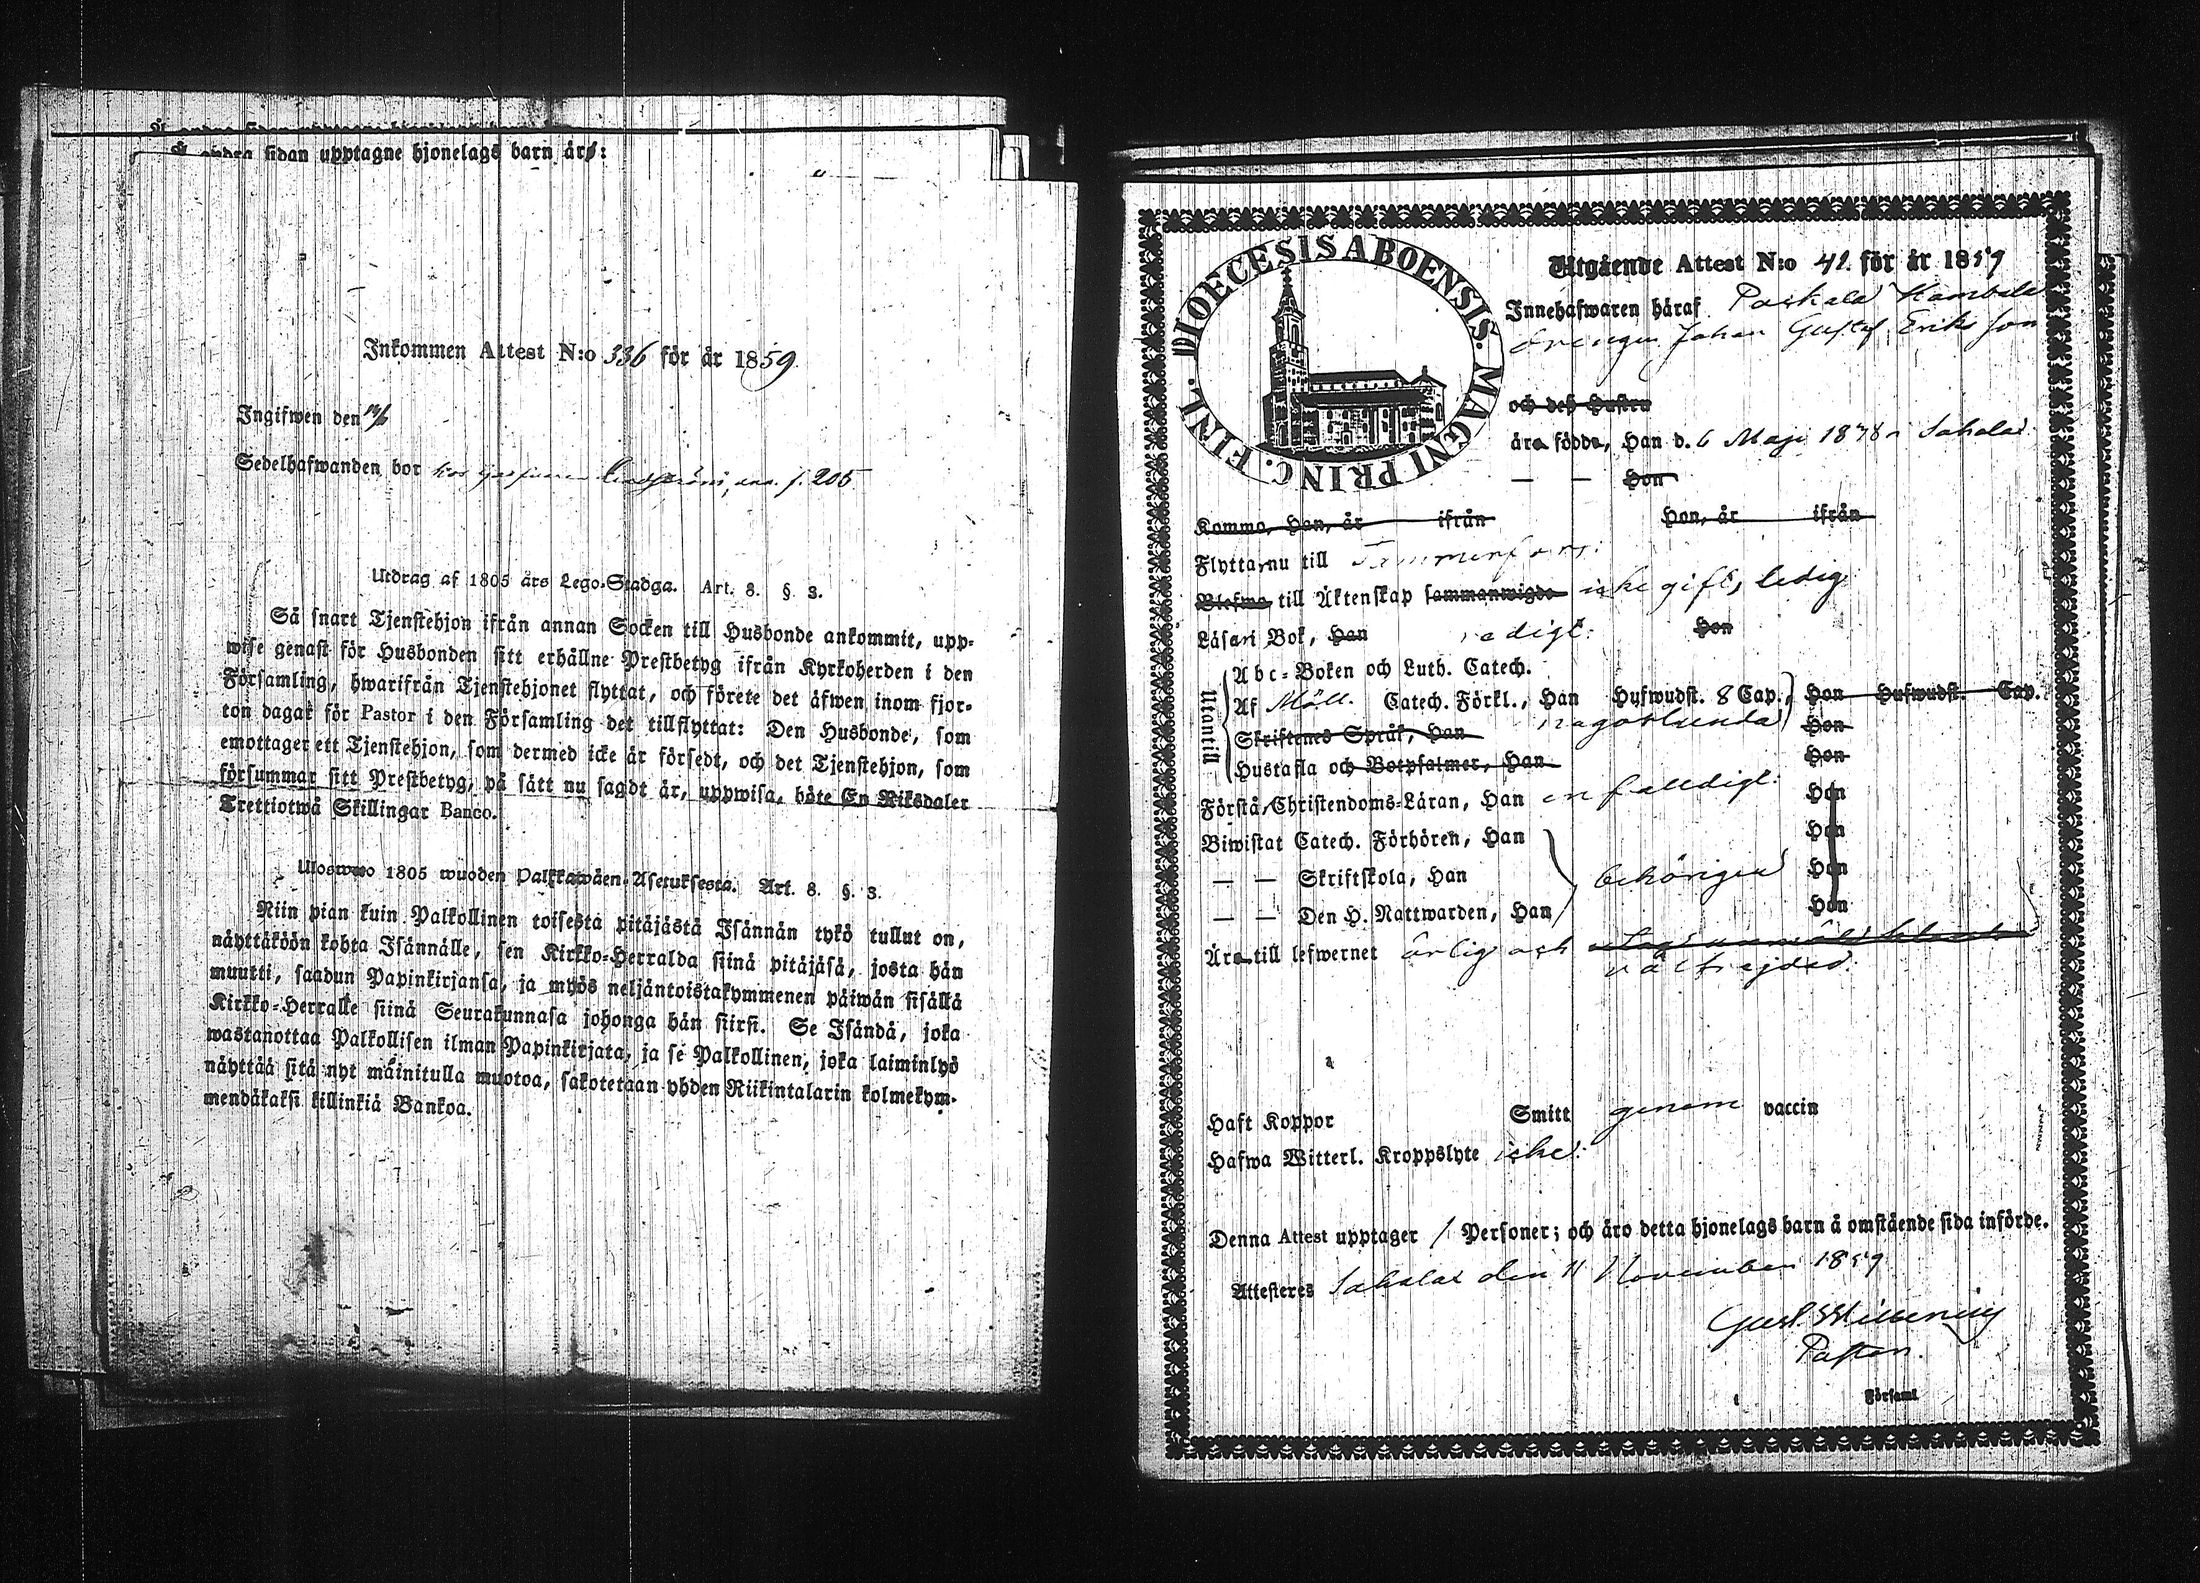 Å andra sidan upptagne hjonelags barn äro:
Inkommen Attest N:o 336 för år 1859
Ingifwen den
Sedelhafwanden bor hos f. 205
Utdrag af 1805 års Lego-Stadga. Art. 8. § 3.
Så snart Tjenstehjon ifrån annan Socken till Husbonde ankommit, upp-
wise genast för Husbonden sitt erhållne Prestbetyg ifrån Kyrkoherden i den
Församling, hwarifrån Tjenstehjonet flyttat, och förete det äfwen inom fjor-
ton dagar för Pastor i den Församling det tillflyttat: Den Husbonde, som
emottager ett Tjenstehjon, som dermed icke är försedt, och det Tjenstehjon, som
försummar sitt Prestbetyg, på sätt nu sagdt är, uppwisa, böte En Riksdaler
Trettiotwå Skillingar Banco.
Uloswwo 1805 wuoden Palkkawäen-Asetuksesta. Art. 8. §. 3.
Niin pian kuin Palkollinen toisesta pitäjästä Isännän tykö tullut on,
näyttäköön kohta Isännälle, sen Kirkko-Herralda siinä pitäjäsä, josta hän
muutti, saadun Papinkirjansa, ja myös neljäntoistakymmenen päiwän sisällä
Kirkko-Herralle siinä Seurakunnasa johonga hän siirsi. Se Isändä, joka
wastanottaa Palkollisen ilman Papinkirjata, ja se Palkollinen, joka laiminlyö
näyttää sitä nyt mainitulla muotoa, sakotetaan yhden Riikintalarin kolmekym-
mendäkaksi killinkiä Bankoa.
DIOECESIS ABOENSIS. MAGNI PRINC. FINL.
Utgående Attest N:o 42 för år 1859
Innehafwaren häraf
Drengen Johan Gustaf Eriksson
och deß Hustru
äro födde, Han d. 6 Maji 18 i Sahalax
— — Hon
Kommo, Han, år ifrån Hon, år ifrån
Flytta nu till Tammerfors.
Blefwo till Äktenskap sammanwigde icke gift, ledig
Läsa i Bok, Han redigt. Hon
Utantill
Abc-Boken och Luth. Catech.
Af Möll. Catech. Förkl., Han Hufwudst. 8 Cap., Hon Hufwudst. Cap.
Skriftenes Språk, Han någorlunda Hon
Hustafla och Botpsalmer, Han Hon
Förstå Christendoms-Läran, Han enfalldigt. Hon
Biwistat Catech. Förhören, Han Hon
— — Skriftskola, Han behörigen Hon
— — Den H. Nattwarden, Han Hon
Äro till lefwernet ärlig och
välfrejdad.
Haft Koppor Smitt genom vaccin
Hafwa Witterl. Kroppslyte icke.
Denna Attest upptager 1 Personer; och äro detta hjonelags barn å omstående sida införde.
Attesteres Sahalax den 11 November 1859
Pastor.
i Församl.